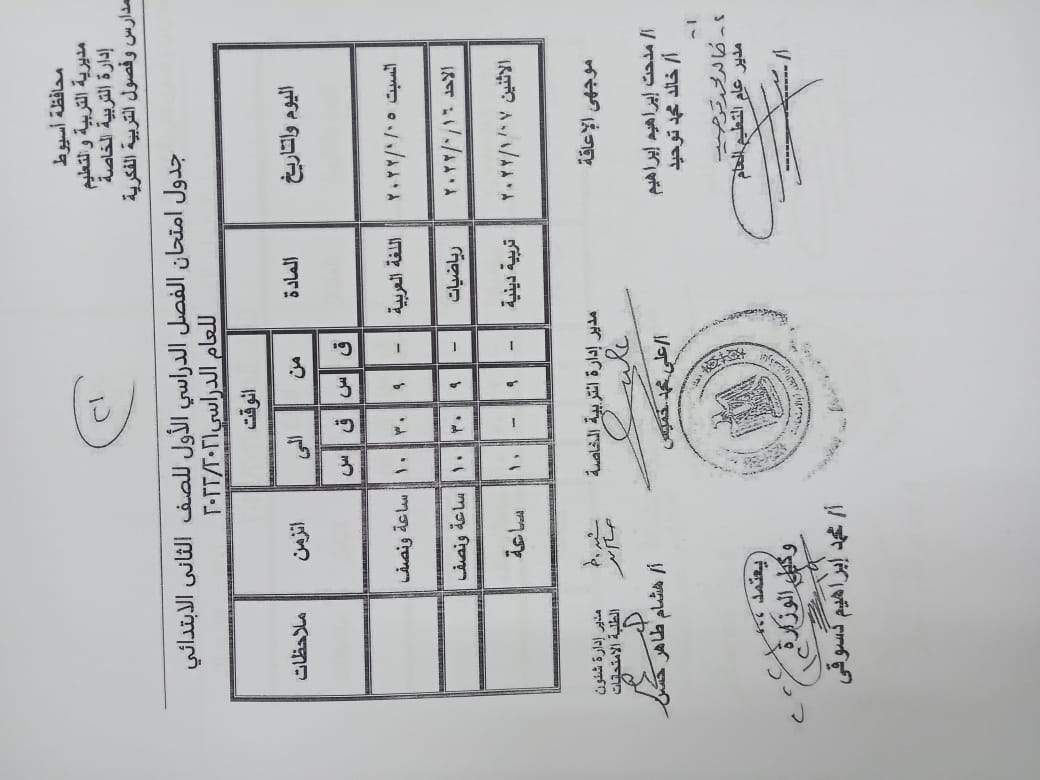 محافظة أسيوط
مديرية التربية والتعليم
إدارة التربية الخاصة
مدارس وفصول التربية الفكرية
جدول امتحان الفصل الدراسي الأول للصف الثانى الابتدائي
للعام الدراسي ٢٠٢٢/٢٠٢١
اليوم والتاريخ المادة الوقت الزمن ملاحظات
من الى
ق س ق س
السبت ٢٠٢٢/١/٠٥ اللغة العربية – ٩ ٣٠ ١٠ ساعة ونصف
الاحد رياضيات – ٩ ٣٠ ١٠ ساعة ونصف
الاثنين ٢٠٢٢/١/٠٧ تربية دينية – ٩ – ١٠ ساعة
موجهى الإعاقة
أ/ مدحت إبراهيم إبراهيم
أ/ خالد محمد توحيد
مدير إدارة التربية الخاصة
أ/على محمد خميس
مدير إدارة شئون
الطلبة الامتحانات
أ/ هشام طاهر حسن
مدير عام التعليم العام
أ/
يعتمد
وكيل الوزارة
أ/ محمد إبراهيم دسوقى